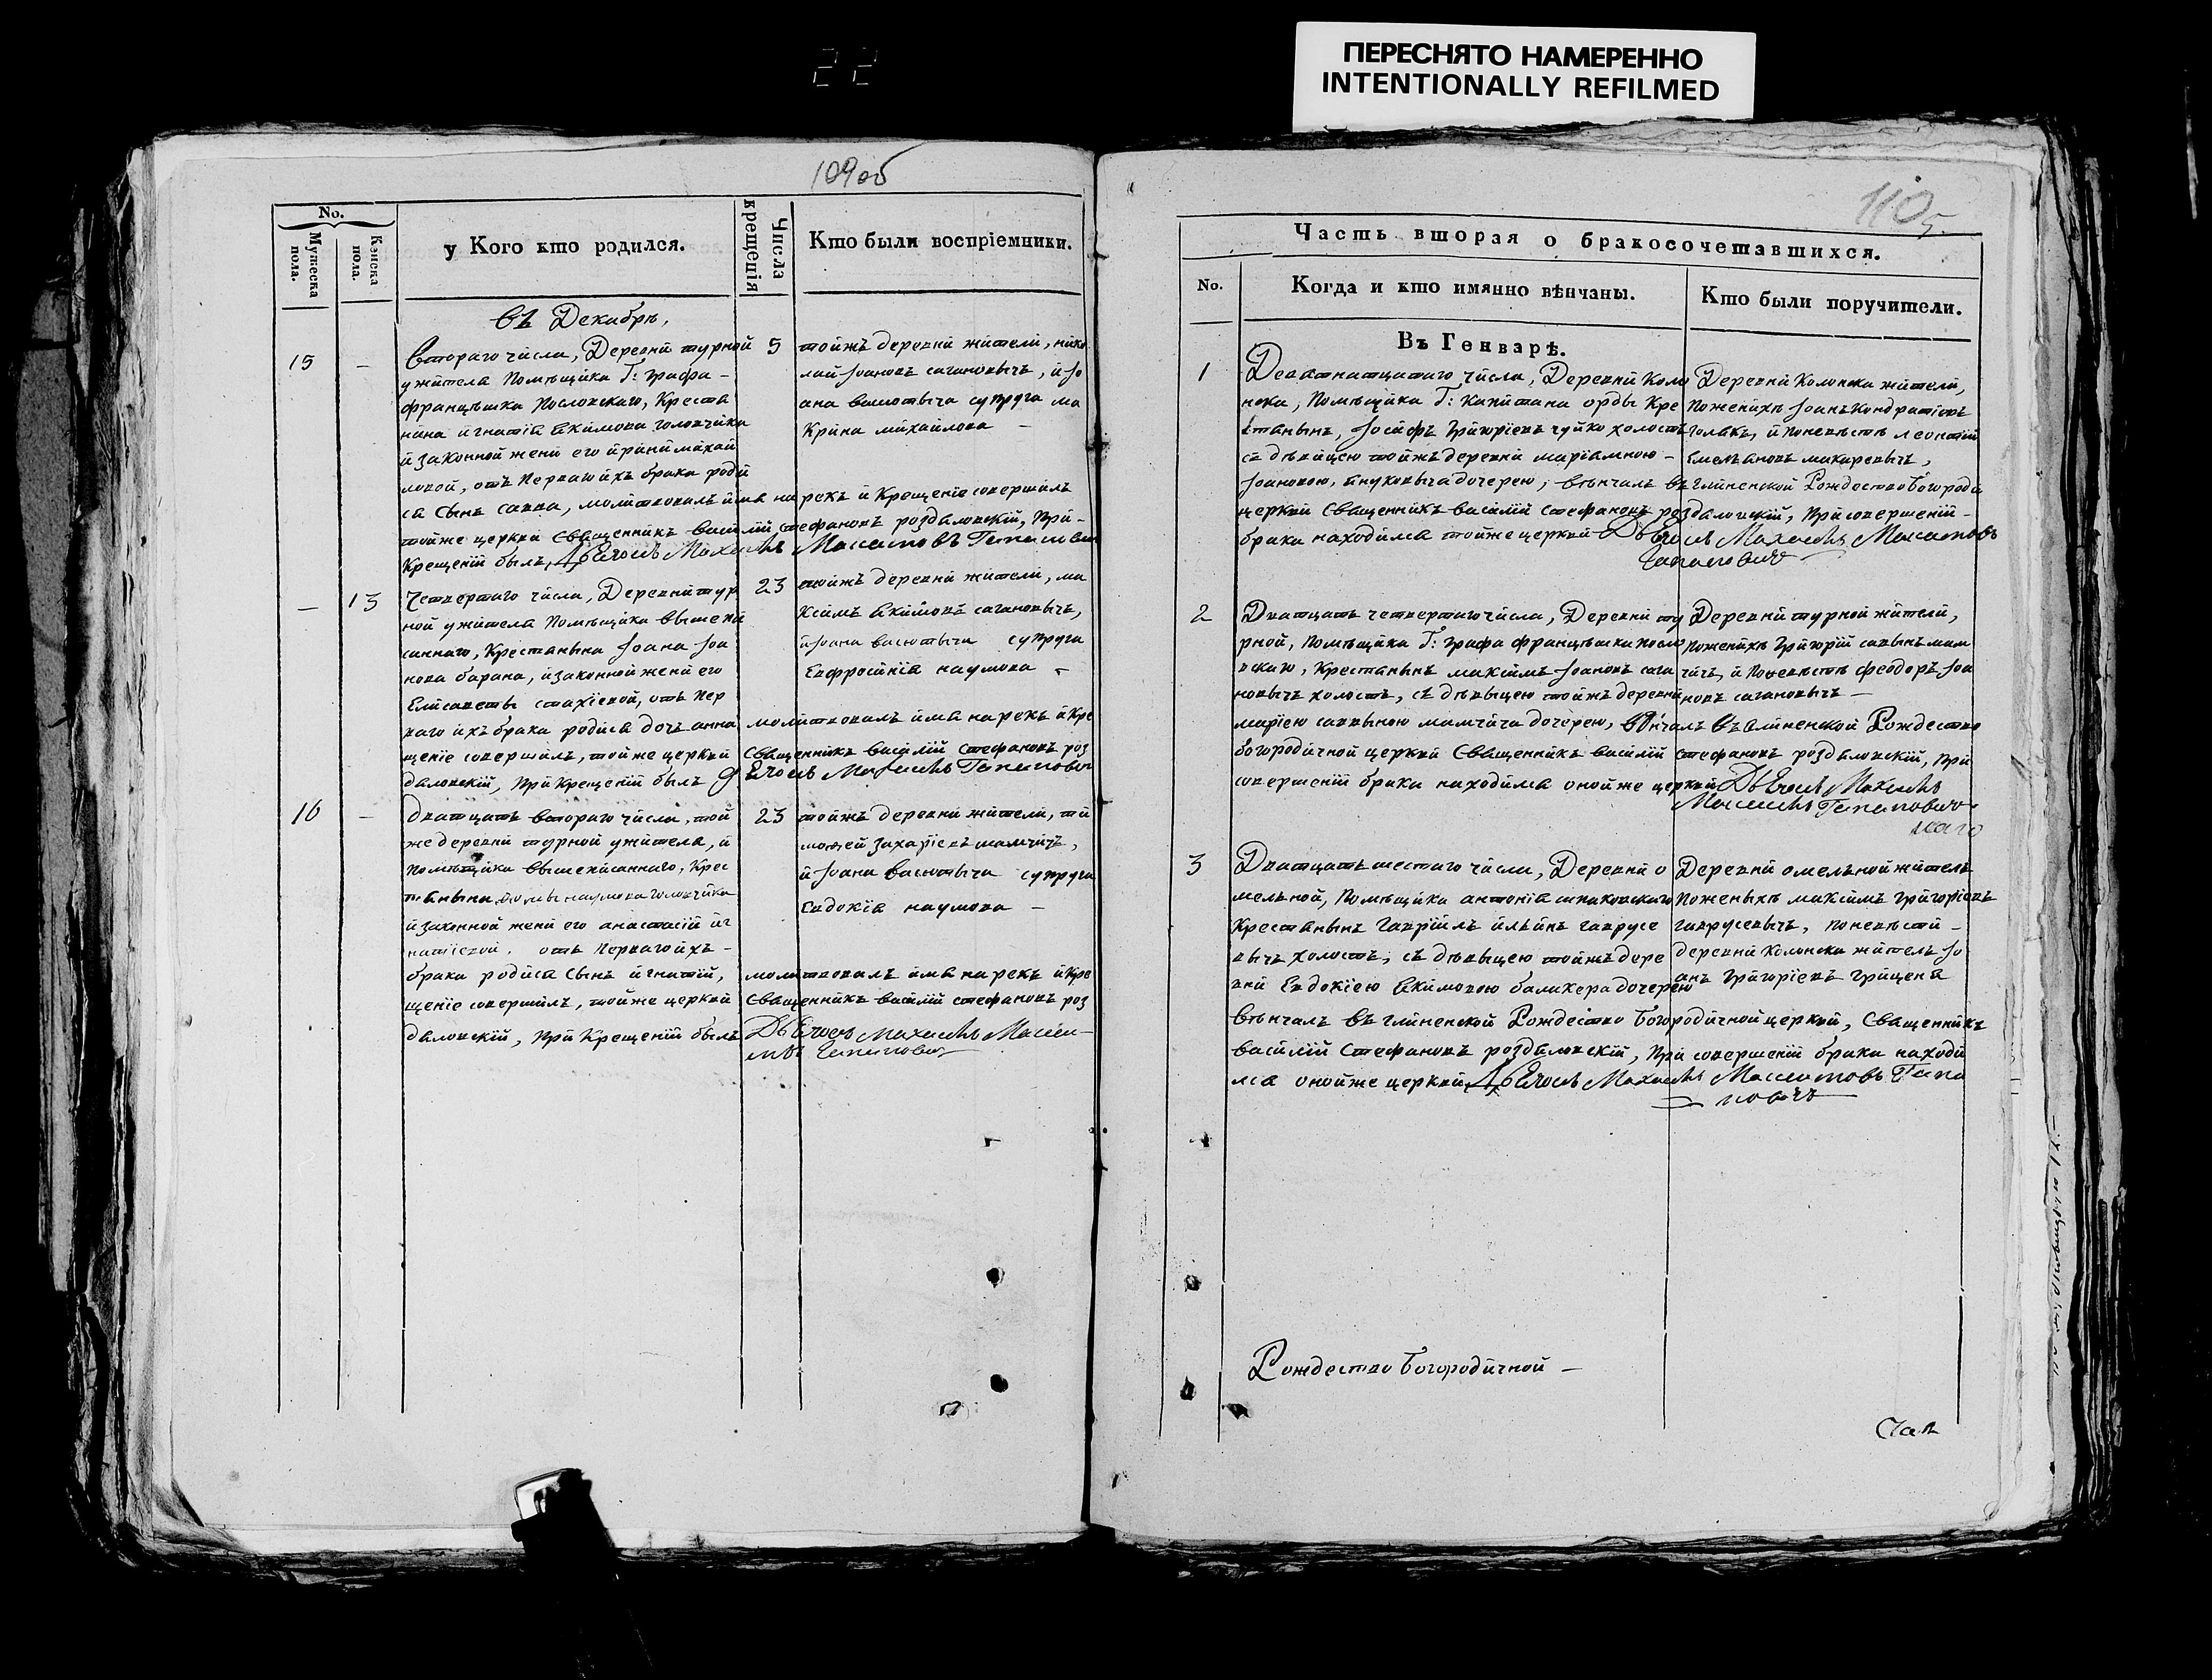 22
ПЕРЕСНЯТО НАМЕРЕННО
INTENTIONALLY REFILMED
109об
No.
Мужеска пола.
Женска пола.
у Кого кто родился.
Числа крещенія
Кто были воспріемники.
въ Декабрѣ,
15 –
втораго числа, Деревни турной
ужителя Помѣщика Г: Графа –
францѣшка Пословскаго, Крестя
нина игнатія акимова головчика
и законной жени его ирини михай
ловой, отъ перваго ихъ брака роди
ся сынъ савва, молитвовалъ имя нарекъ и крещеніе совершилъ
тойже церкви священникъ василій стефановъ роздяловскій, при –
крещеніи былъ,
5
тойжъ деревни жители, нико
лай іоановъ сагановычъ, и іо
ана васютыча супруга ма
крина михайлова –
– 13
Четвертаго числа, Деревни тур
ной ужителя Помѣщика вышепи
саннаго, Крестянына іоана іоа
нова барана, и законной жени его
Елисаветы стахіевой, отъ пер
ваго ихъ брака родися дочъ анна молитвовалъ имя нарекъ и кре
щеніе совершилъ, тойже церкви священникъ василій стефановъ роз
дяловскій, при крещеніи былъ
23
тойжъ деревни жители, ма
ксимъ акимовъ сагановычъ,
и іоана васютыча супруга
Евфросинія наумова –
16 –
Дватцать втораго числа, той
же деревни турной ужителя, и
помѣщика вышеписаннаго, Крес
тянына наумова головчика
и законной жени его анастасіи иг
натіевой, отъ перваго ихъ –
брака родися сынъ игнатій, молитвовалъ имя нарекъ и кре
щеніе совершилъ, тойже церкви священникъ василій стефановъ роз
дяловскій, при крещеніи былъ
23
тойжъ деревни жители, ти
мофей захаріевъ мамчичъ,
и іоана васютыча супруга
Евдокія наумова –
110
Часть вторая о бракосочетавшихся.
No.
Когда и кто имянно вѣнчаны.
Кто были поручители.
Въ Генварѣ.
1
Девятнатцатаго числа, Деревни Коло
нска, Помѣщика Г: Капитана орды Кре
стянынъ, іосифъ григоріевъ чуйко холостъ
съ дѣвицею тойжъ деревни маріамною –
іоановою, внуковыча дочерею, вѣнчалъ въ глиненской Рождество Богороди
церкви священникъ василій стефановъ роздяловскій, при совершеніи –
брака находился тойже церкви
Деревни Колонска жители,
По женихѣ іоанъ Кондратіевъ
голякъ, и по невѣстѣ леонтій
Емеляновъ макаревычъ,
2
Дватцать четвертаго числа, Деревни ту
рной, помѣщика Г: графа францѣшка посло
вскаго, Крестянынъ максимъ іоановъ сага
новычъ холостъ, съ дѣвыцею тойжъ деревни
маріею саввыною мамчича дочерею, вѣнчалъ въ глиненской Рождество
богородичной церкви священникъ василій стефановъ роздяловскій, при
совершеніи брака находился онойже церкви
Деревни турной жители,
по женихѣ григорій саввынъ мам
чичъ, и по невѣстѣ феодоръ іоа
новъ сагановычъ –
3
Дватцать шестаго числа, Деревни о
мельной, помѣщика антонія шпаковскаго
Крестянынъ гавріилъ ильинъ гаврусе
вычъ холостъ, съ дѣвыцею тойжъ дере
вни Евдокіею акимовою баликера дочерею
вѣнчалъ въ глиненской Рождество Богородичной церкви, священникъ
василій стефановъ роздяловскій, при совершеніи брака находи
лся онойже церкви
Деревни омельной жителъ
По женыхѣ максимъ григоріевъ
гаврусевычъ, по невѣстѣ –
деревни Колонска жителъ іо
анъ григоріевъ грицена
Рождество Богородичной –